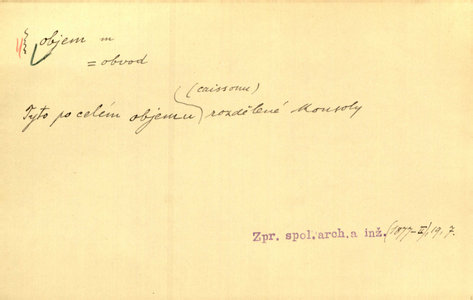 objem m
= obvod
(caissonu)
Tyto po celém objemu rozdělené konsoly
Zpr. spol. arch. a inž. (1877-II), 19, 7.